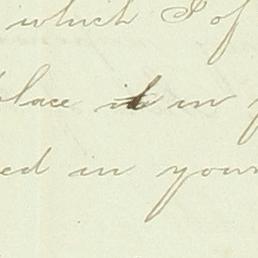 which I of
place it in
ed in your